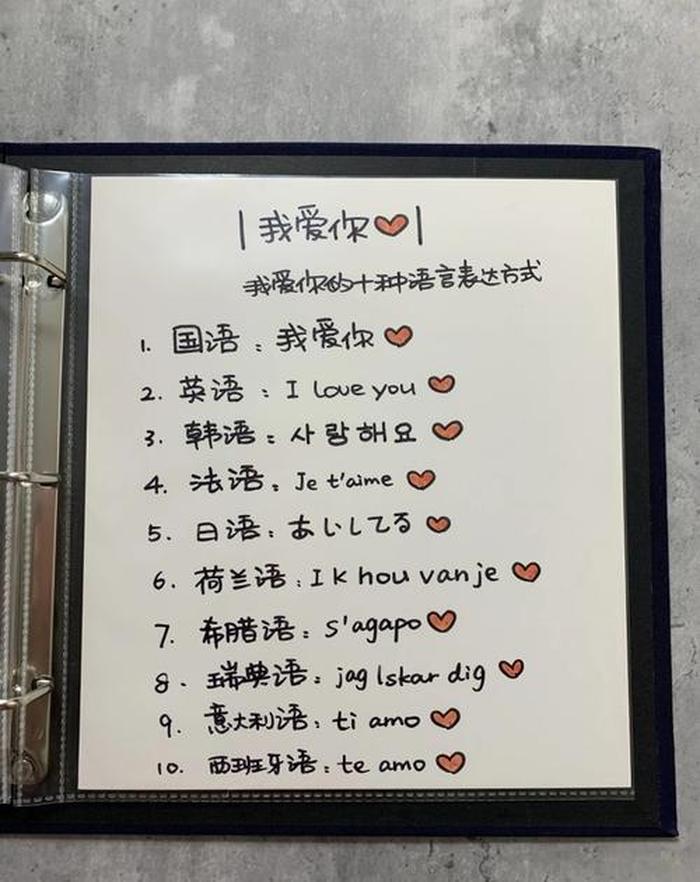 |我爱你|
我爱你的十种语言表达方式
1. 国语：我爱你
2. 英语：I love you
3. 韩语：사랑해요
4. 法语：Je t'aime
5. 日语：あいしてる
6. 荷兰语：I k hou van je
7. 希腊语：s'agapo
8. 瑞典语：jag lskar dig
9. 意大利语：ti amo
10. 西班牙语：te amo